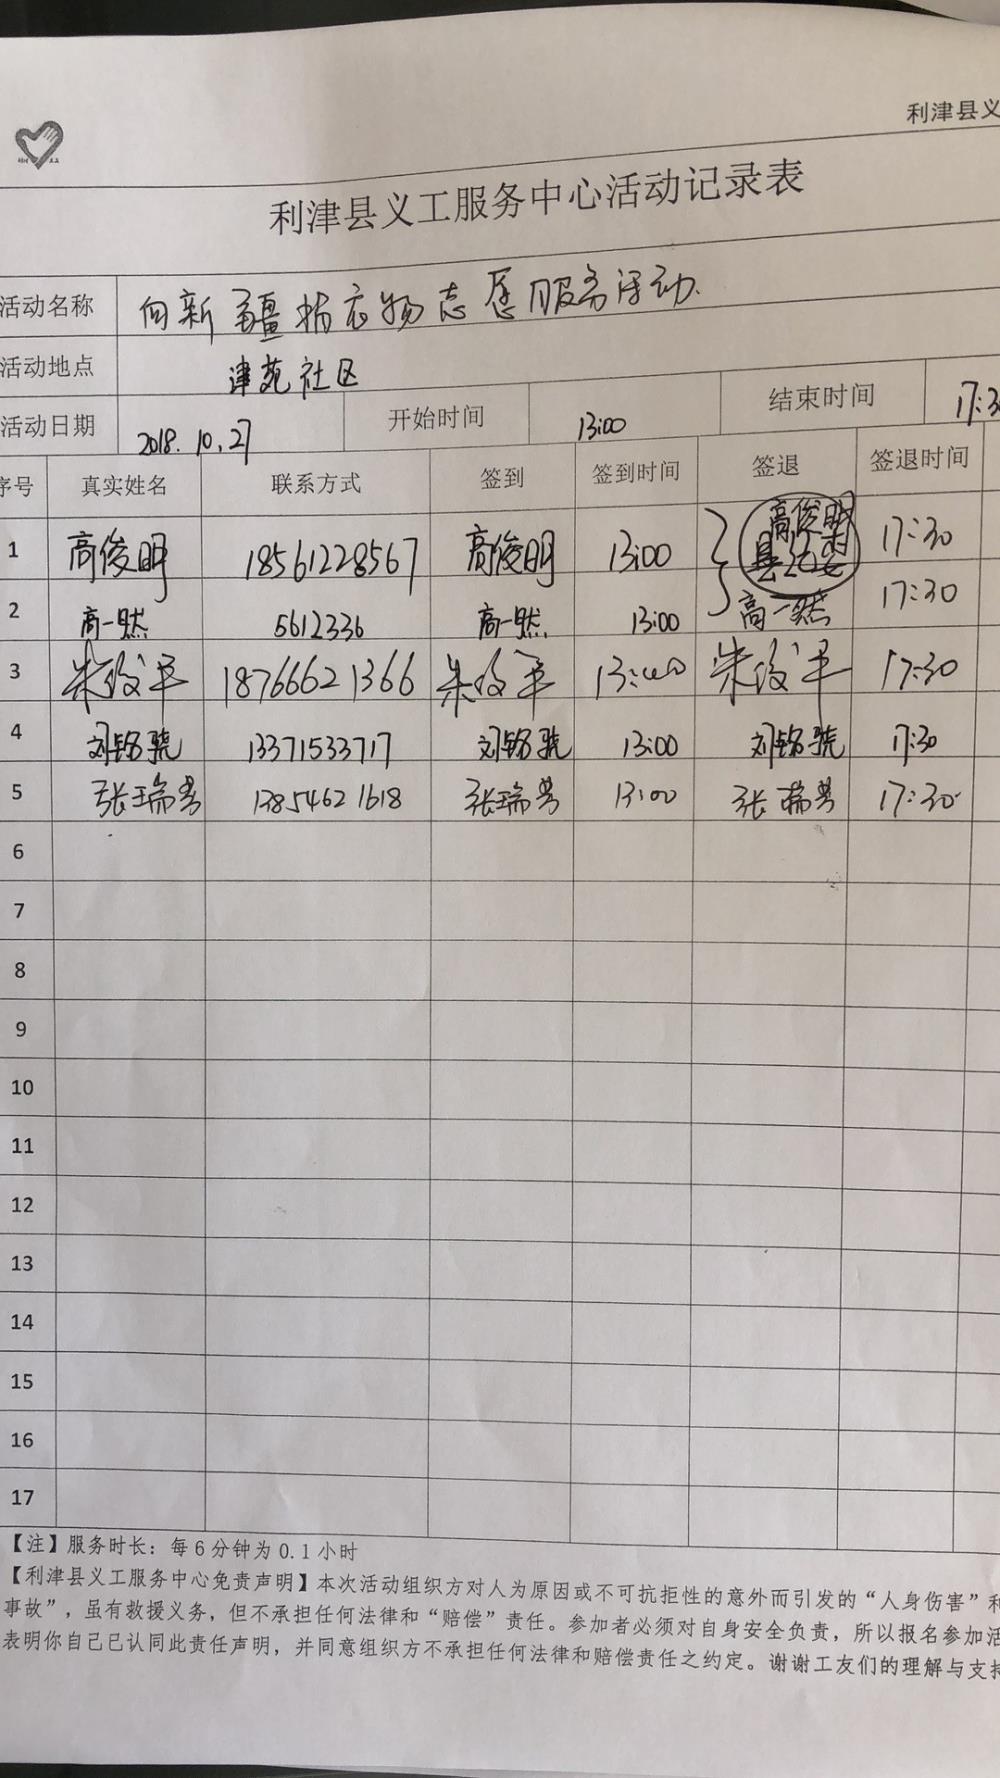 利津县义
利津县义工服务中心活动记录表
活动名称 向新疆捐衣物志愿服务活动.
活动地点 津苑社区
活动日期 2018.10.27 开始时间 13:00 结束时间 17:30
序号 真实姓名 联系方式 签到 签到时间 签退 签退时间
1 高俊明 18561228567 高俊明 13:00 高俊明 17:30
2 高一然 5612336 高一然 13:00 高一然 17:30
3 朱俊平 18766621366 朱俊平 13:00 朱俊平 17:30
4 刘铭骁 13371533717 刘铭骁 13:00 刘铭骁 17:30
5 张瑞芳 13854621618 张瑞芳 13:00 张瑞芳 17:30
6
7
8
9
10
11
12
13
14
15
16
17
【注】服务时长：每6分钟为0.1小时
【利津县义工服务中心免责声明】本次活动组织方对人为原因或不可抗拒性的意外而引发的“人身伤害”和
事故”，虽有救援义务，但不承担任何法律和“赔偿”责任。参加者必须对自身安全负责，所以报名参加活
表明你自己已认同此责任声明，并同意组织方不承担任何法律和赔偿责任之约定。谢谢工友们的理解与支持